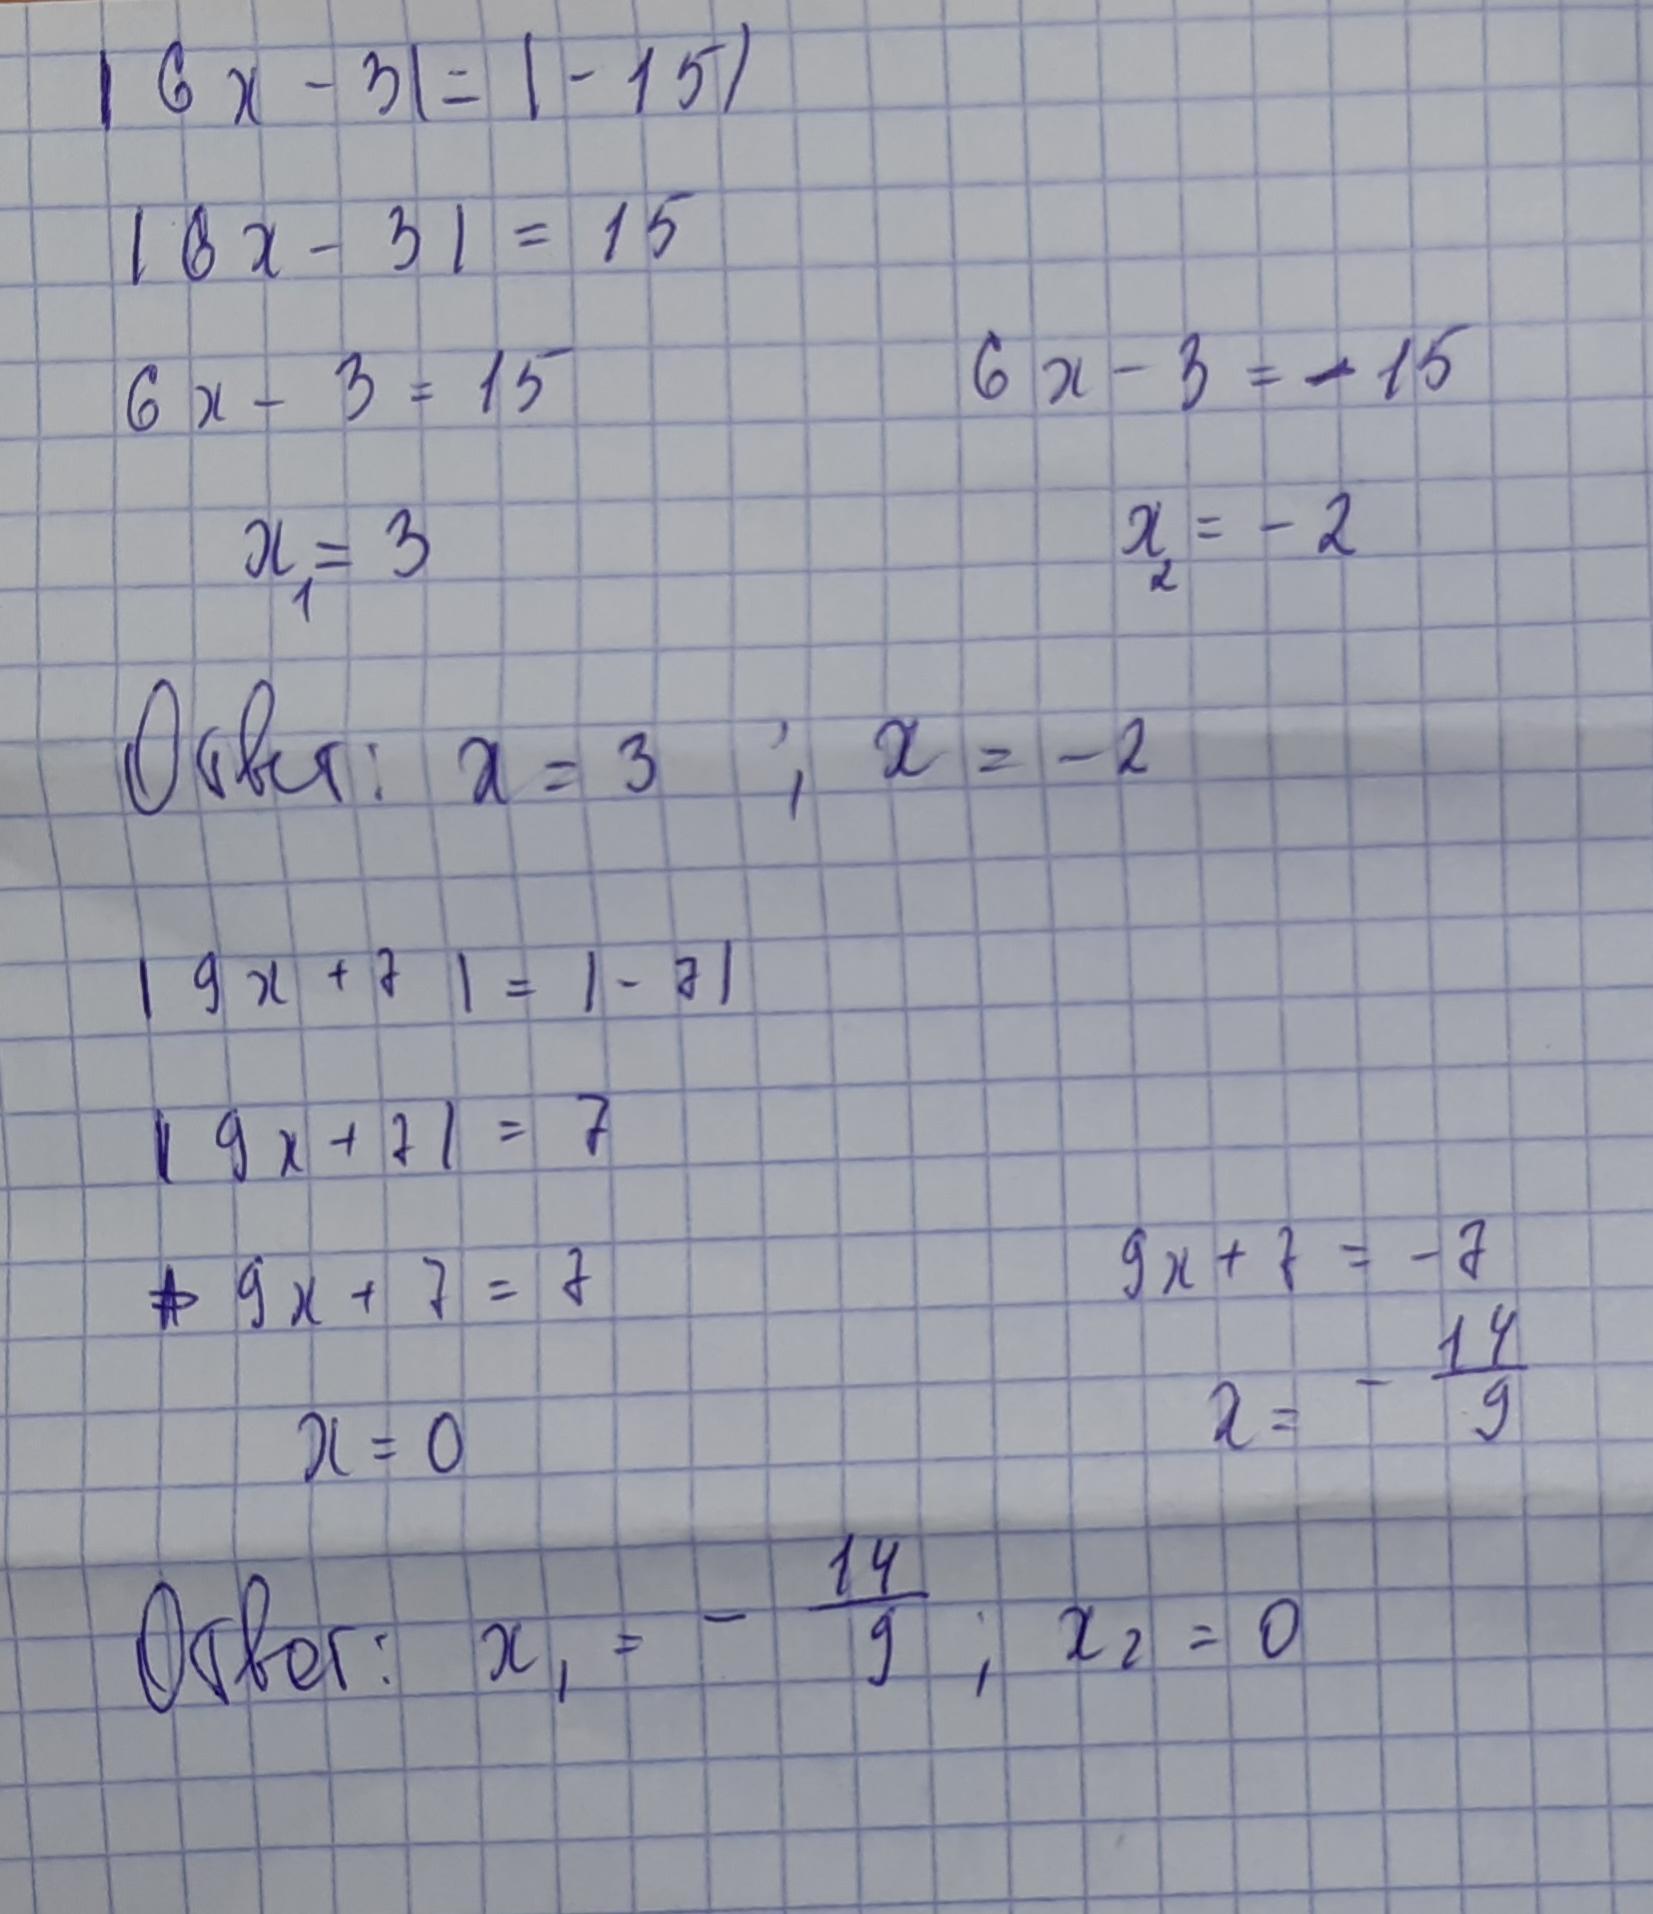 |6x - 3| = |-15|
|6x - 3| = 15
6x - 3 = 15 6x - 3 = -15
x₁ = 3 x₂ = -2
Ответ: x = 3 ; x = -2
|9x + 7| = |-7|
|9x + 7| = 7
9x + 7 = 7 9x + 7 = -7
x = 0 x = - 14/9
Ответ: x₁ = - 14/9 ; x₂ = 0